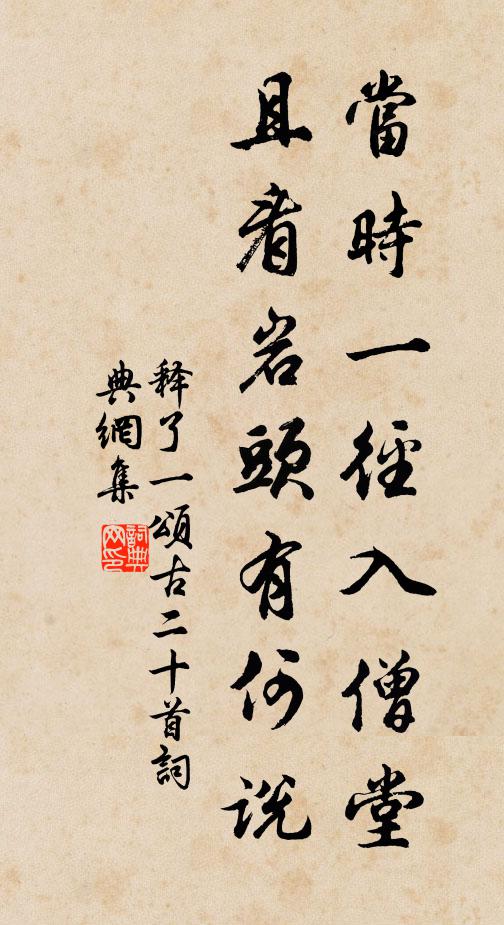 當時一徑入僧堂
且看岩頭有何說
释了一頌古二十首詞
典網集
詞典
网印